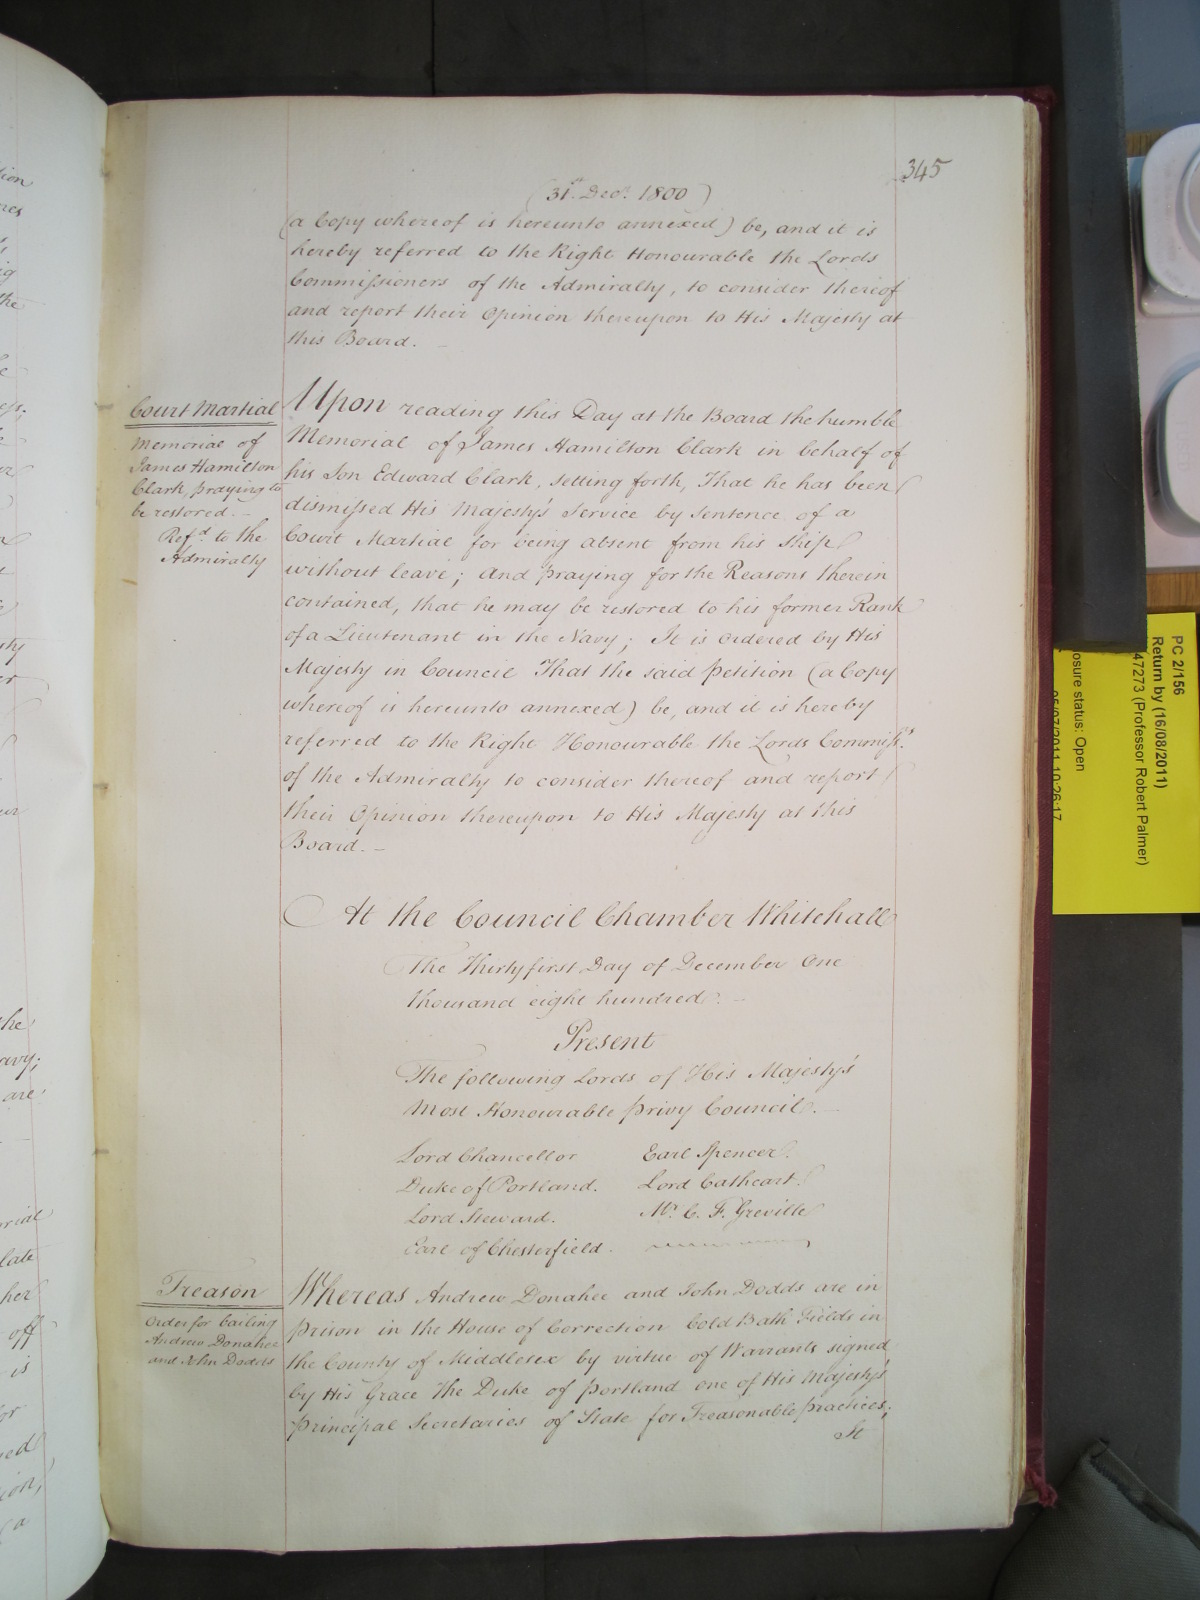 345
(31st. Decr. 1800)
(a Copy whereof is hereunto annexed) be, and it is
hereby referred to the Right Honourable the Lords
Commissioners of the Admiralty, to consider thereof
and report their Opinion thereupon to His Majesty at
this Board. –
Court Martial
Memorial of
James Hamilton
Clark, praying to
be restored. –
Refd. to the
Admiralty
Upon reading this Day at the Board the humble
Memorial of James Hamilton Clark in behalf of
his Son Edward Clark, setting forth, That he has been
dismissed His Majesty's Service by Sentence of a
Court Martial for being absent from his Ship
without leave; and praying for the Reasons therein
contained, that he may be restored to his former Rank
of a Lieutenant in the Navy; It is ordered by His
Majesty in Council That the said Petition (a Copy
whereof is hereunto annexed) be, and it is hereby
referred to the Right Honourable the Lords Commissrs.
of the Admiralty to consider thereof and report
their Opinion thereupon to His Majesty at this
Board. –
At the Council Chamber Whitehall
The Thirtyfirst Day of December One
thousand eight hundred. –
Present
The following Lords of His Majesty's
Most Honourable Privy Council. –
Lord Chancellor Earl Spencer.
Duke of Portland. Lord Cathcart.
Lord Steward. Mr. C. F. Greville
Earl of Chesterfield.
Treason
Order for bailing
Andrew Donahee
and John Dodds
Whereas Andrew Donahee and John Dodds are in
Prison in the House of Correction Cold Bath Fields in
the County of Middlesex by virtue of Warrants signed
by His Grace The Duke of Portland one of His Majesty's
Principal Secretaries of State for Treasonable Practices;
It
PC 2/156
Return by (16/08/2011)
47273 (Professor Robert Palmer)
osure status: Open
05/07/2011 10:26:17